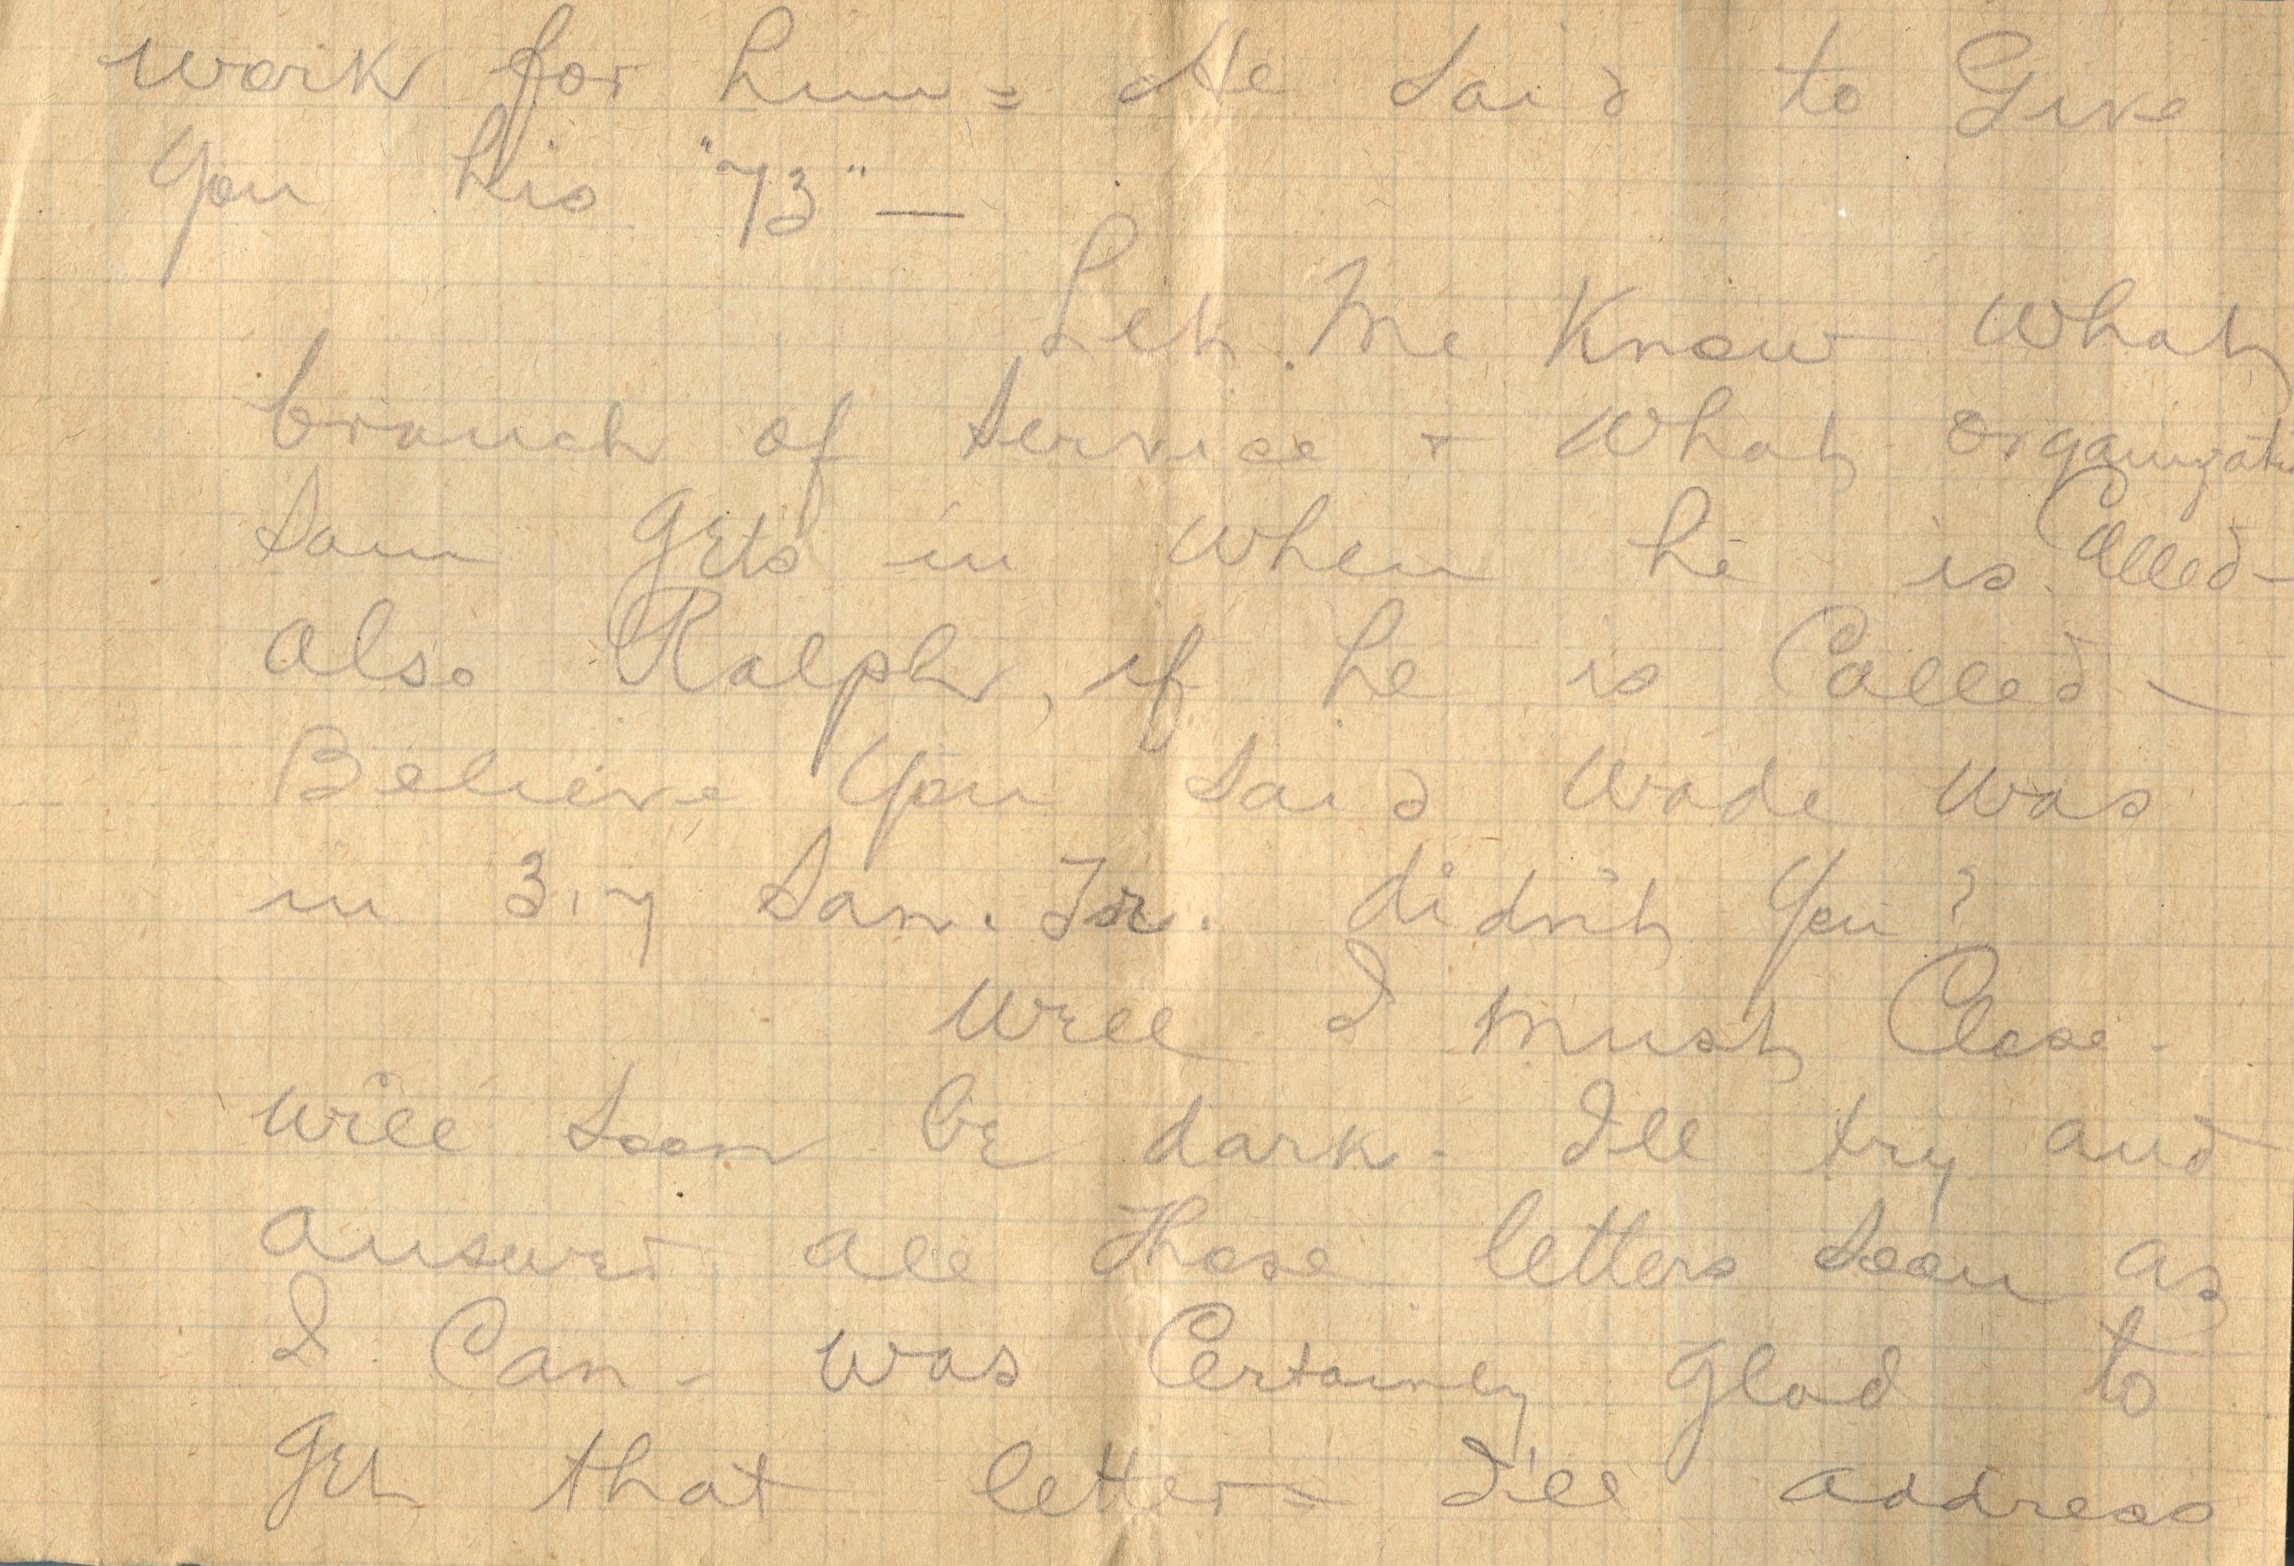 work for him = He said to Give
You his "73" —
Let Me Know What
branch of Service + What Organizatn
Sam Gets in When he is Called -
also Ralph, if he is Called -
Believe You Said Wade Was
in 317 San. Tr. didn't You?
Well I must Close -
Will Soon be dark - I'll try and
answer all those letters Soon as
I Can - Was Certainly glad to
Get that letter = I'll address